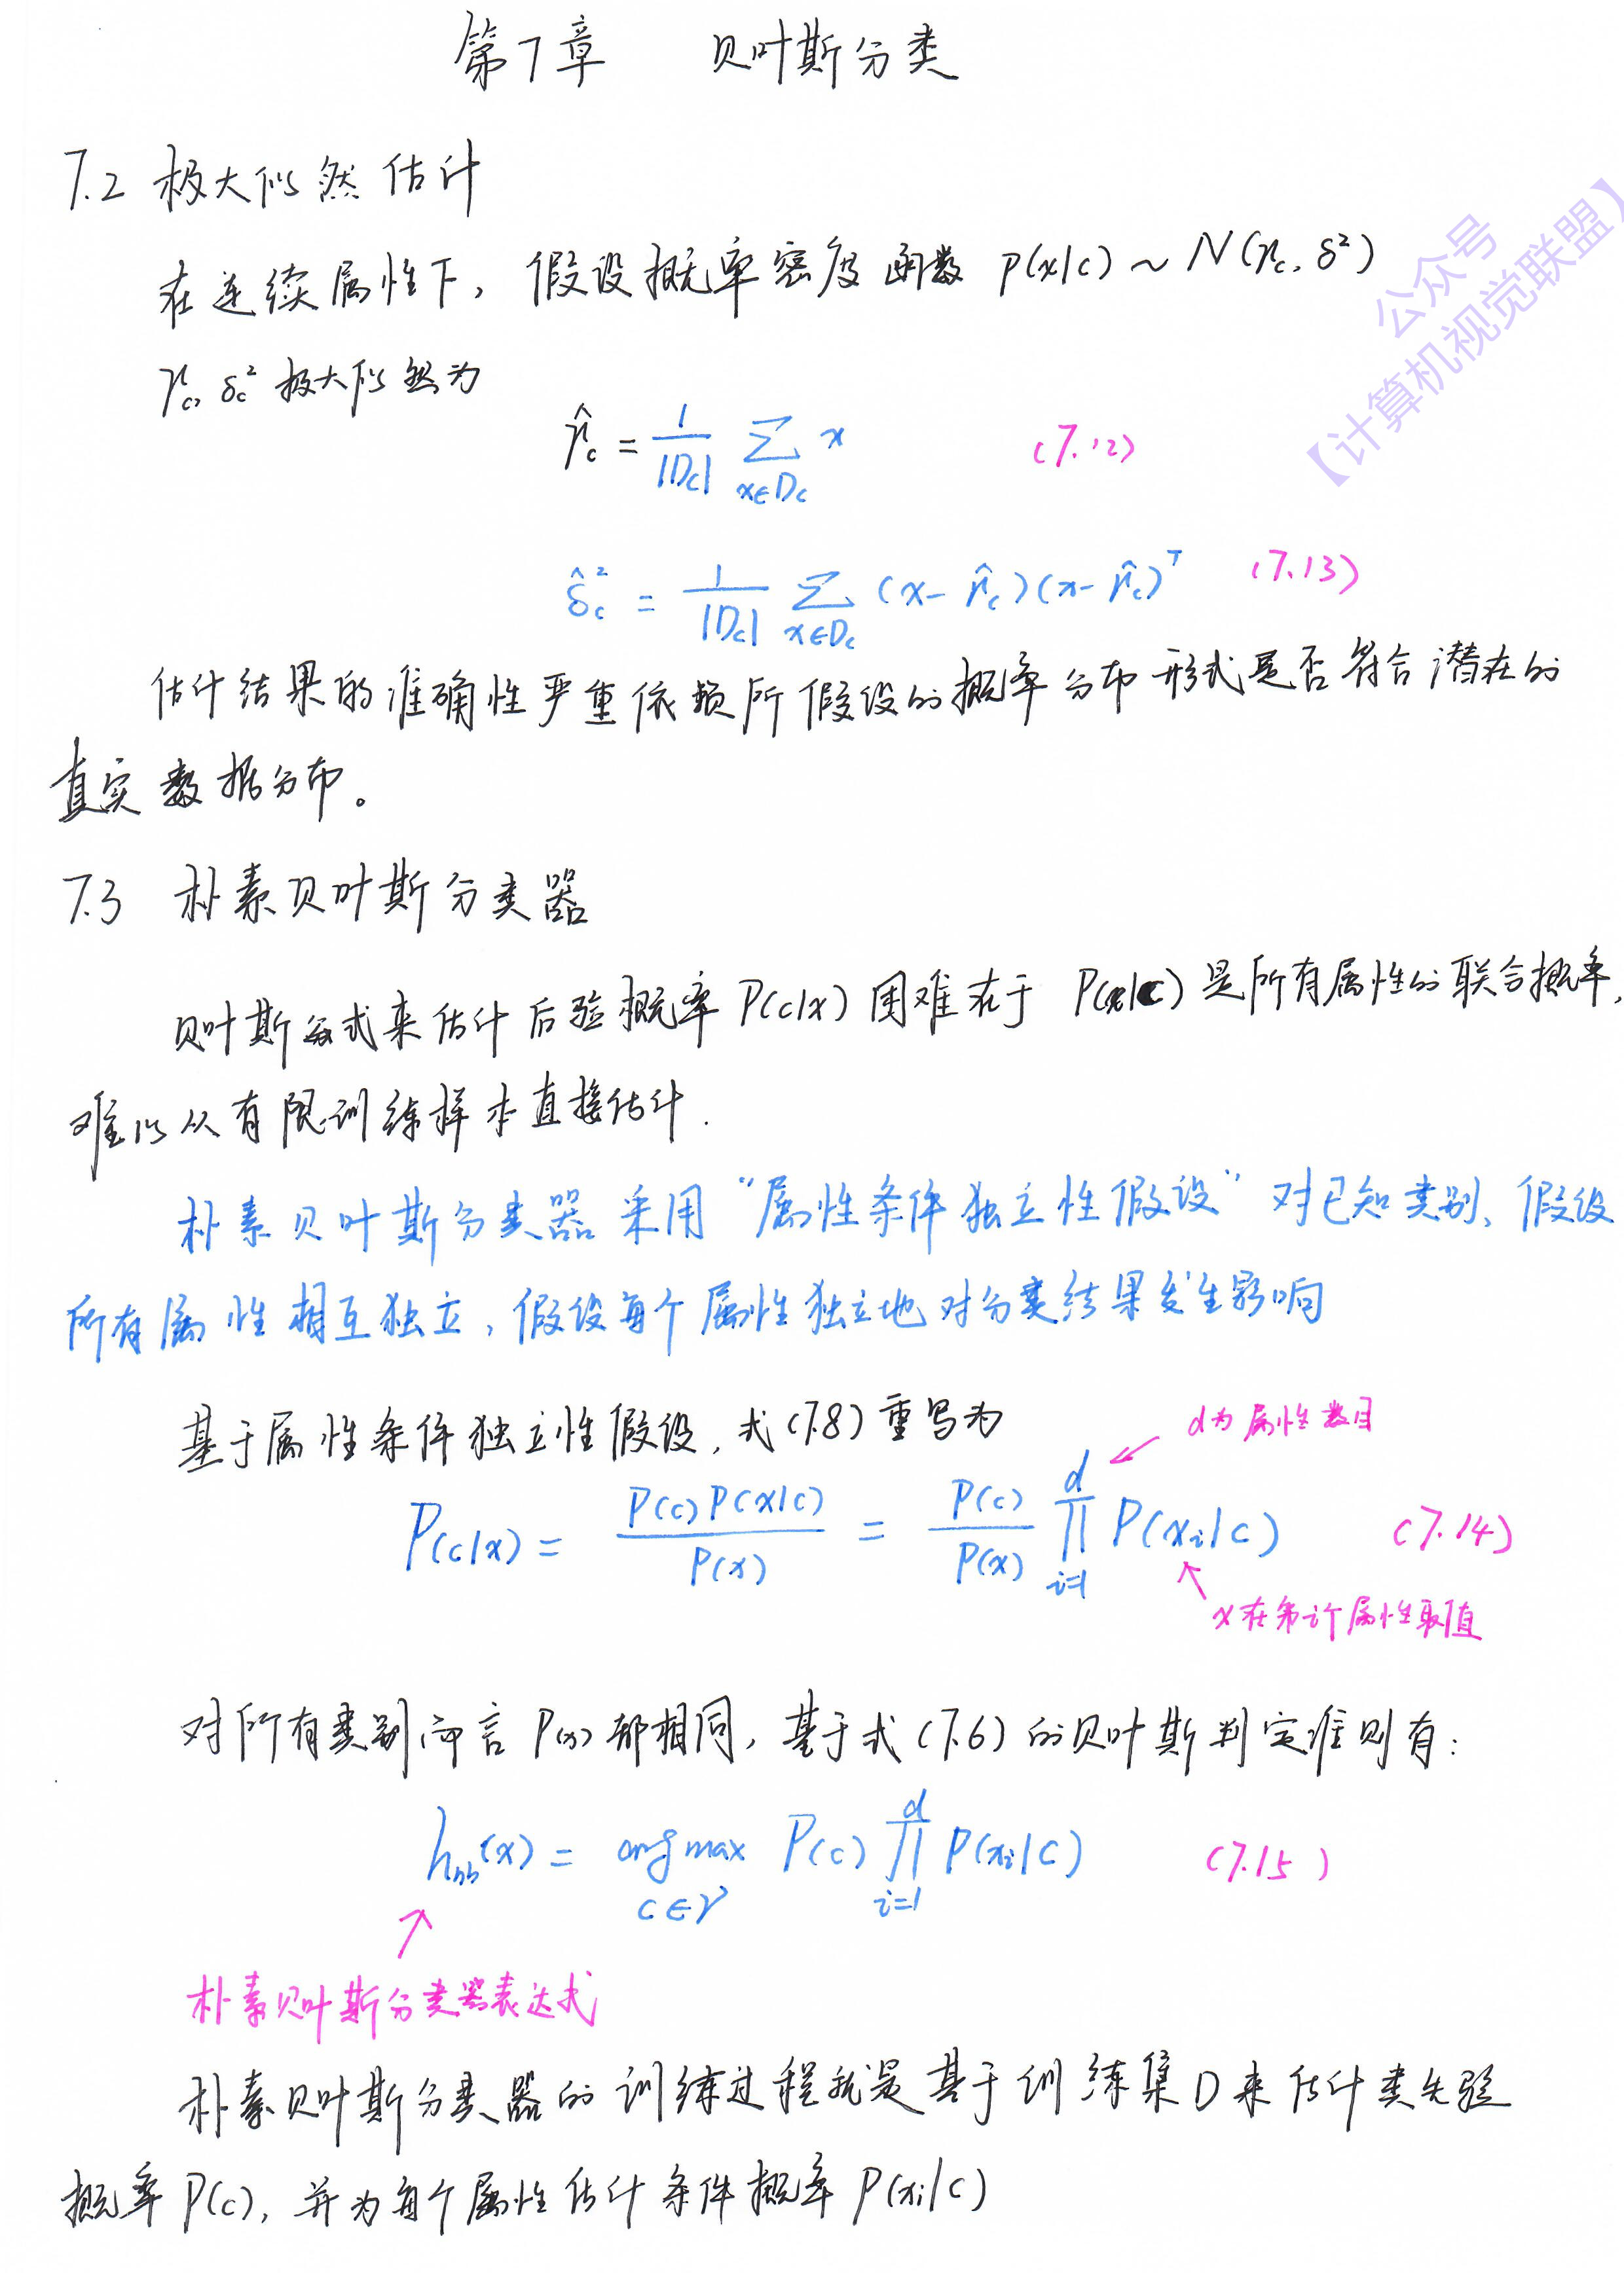 第7章 贝叶斯分类
7.2 极大似然估计
在连续属性下，假设概率密度函数 p(x|c) ~ N(μc, δ²)
μc, δc² 极大似然为
μ̂c = 1/|Dc| Σ x∈Dc x (7.12)
δ̂c² = 1/|Dc| Σ x∈Dc (x-μ̂c)(x-μ̂c)ᵀ (7.13)
估计结果的准确性严重依赖所假设的概率分布形式是否符合潜在的
真实数据分布。
7.3 朴素贝叶斯分类器
贝叶斯公式来估计后验概率 P(c|x) 困难在于 P(x|c) 是所有属性的联合概率,
难以从有限训练样本直接估计.
朴素贝叶斯分类器采用“属性条件独立性假设”对已知类别、假设
所有属性相互独立，假设每个属性独立地对分类结果发生影响
基于属性条件独立性假设, 式(7.8)重写为
d为属性数目
P(c|x) = P(c)P(x|c)/P(x) = P(c)/P(x) ∏ i=1 d P(xi|c) (7.14)
x在第i个属性取值
对所有类别而言 P(x) 都相同, 基于式(7.6)的贝叶斯判定准则有:
hnb(x) = argmax c∈Y P(c) ∏ i=1 d P(xi|c) (7.15)
朴素贝叶斯分类器表达式
朴素贝叶斯分类器的训练过程就是基于训练集D来估计类先验
概率 P(c), 并为每个属性估计条件概率 P(xi|c)
公众号
【计算机视觉联盟】